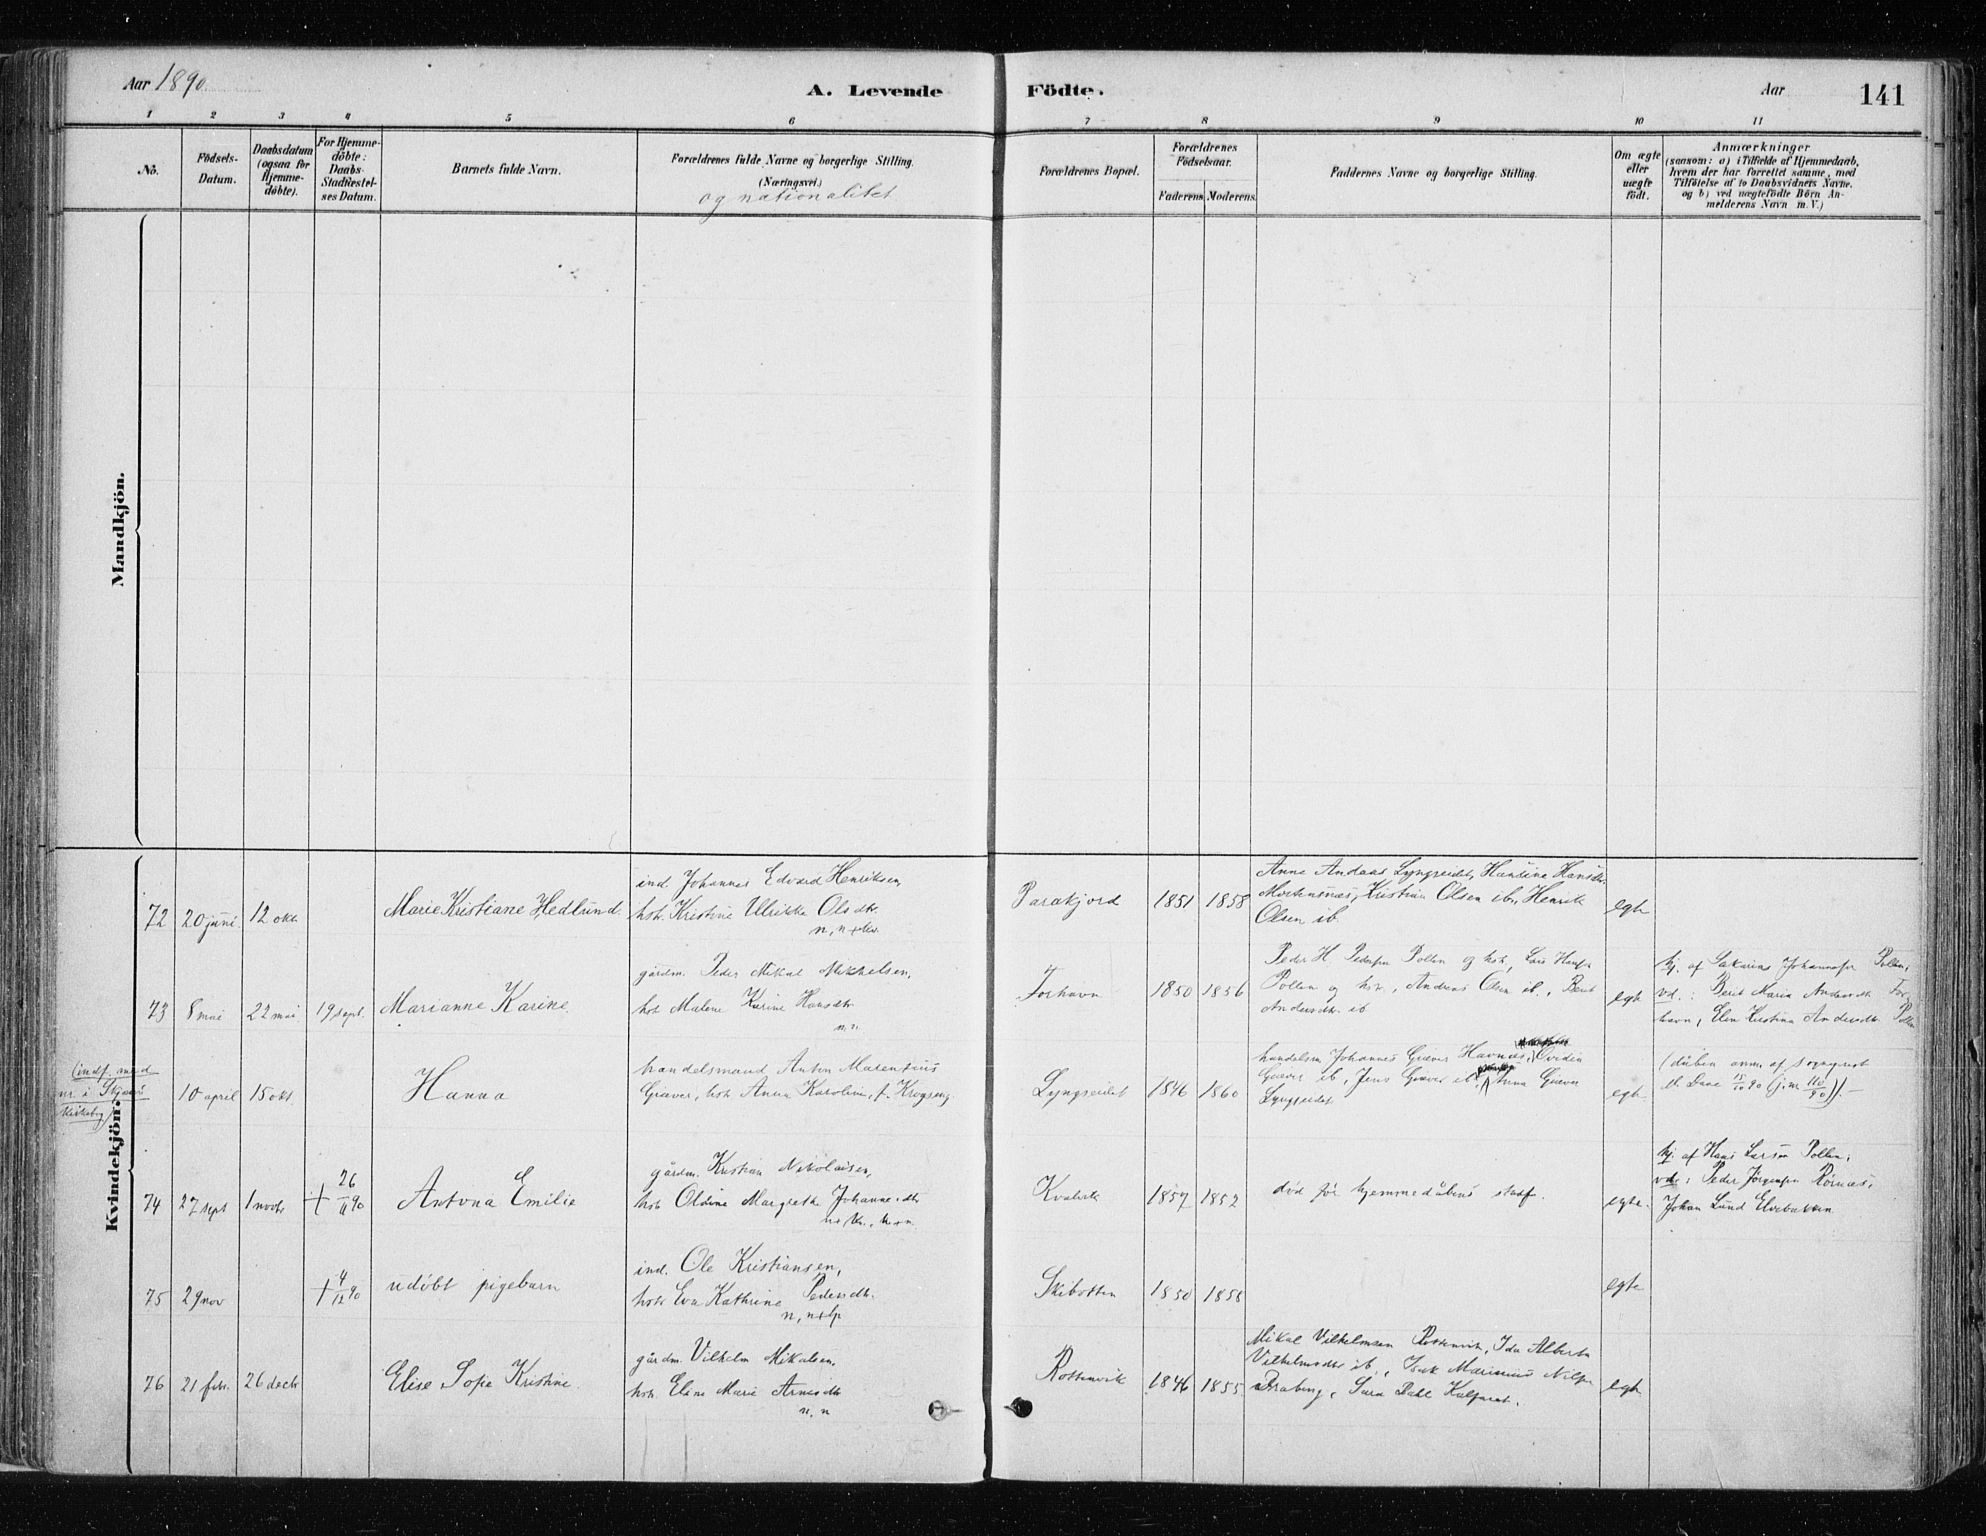 Aar 1890
A. Levende Födte.
Aar 141
1 2 3 4 5 6 7 8 9 10 11
No.
Födsels-
Datum.
Daabsdatum
(ogsaa for
Hjemme-
döbte).
For Hjemme-
döbte:
Daabs-
Stadfæstel-
ses Datum.
Barnets fulde Navn.
Forældrenes fulde Navne og borgerlige Stilling.
(Næringsvei.)
og nationalitet
Forældrenes Bopæl.
Forældrenes
Födselsaar.
Faderens Moderens
Faddernes Navne og borgerlige Stilling.
Om ægte
eller
uægte
födt.
Anmærkninger
(saasom: a) i Tilfælde af Hjemmedaab,
hvem der har forrettet samme, med
Tilföielse af to Daabsvidners Navne,
og b) ved uægtefödte Börn An-
melderens Navn m. V.)
Mandkjön.
Kvindekjön.
72 20 juni 12 okt
Marie Kristiane Hedlund
ind. Johannes Edvard Henriksen,
hst. Kristine Ulrikke Olsdtr.
Parakjord 1851 1858
Anne Andaas Lyngseidet, Hansine Hansdtr.
Mortensnæs, Kristian Olsen ib., Henrik
Olsen ib.
egte
73 8 mai 22 mai 19 sept.
Marianne Karine
gårdm. Peder Mikal Mikkelsen,
hst Malene Karine Hansdtr
n. n.
Forhavn 1850 1856
Peder H. Pedersen Pollen og hst, Lars Hansen
Pollen og hst, Andreas Olsen ib., Berit
Andersdtr ib
egte
hj. af Sakarias Johannesen Pollen,
vd.: Berit Maria Andersdtr For-
havn, Elen Kristina Andersdtr Pollen
(indf. med
nr. i Skjervø
kirkebog)
10 april 15 okt
Hanna
handelsmand Anton Marentius
Giæver, hst Anna Karoline, f. Krogseng
Lyngseidet 1846 1860
handelsm Johannes Giæver Havnæs, Ovidia
Giæver ib, Jens Giæver ib. Anna Giæver
Lyngseidet
egte
(dåben anm. af sogneprest
15/10 90 (j.nr. 110/90)).
74 27 sept 1 novbr + 26/11 90
Antona Emilie
gårdm. Kristian Nikolaisen,
hst Oldine Margrethe Johannesdtr
Kvalvik 1857 1852
død før hjemmedåbens stadf.
egte.
hj. af Hans Larsen Pollen,
vd.: Peder Jørgensen Rørnæs,
Johan Lund Elvebakken
75 29 nov + 4/12 90
udøbt pigebarn
ind. Ole Kristiansen,
hst Eva Kathrine Pedersdtr.
n, n+lp
Skibotten 1850 1858
egte
76 21 febr. 26 decbr
Elise Sofie Kristine
gårdm. Vilhelm Mikalsen,
hst Elene Marie Arnesdtr
n, n
Rottenvik 1846 1855
Mikal Vilhelmsen Rottenvik, Ida Alberta
Vilhelmsdtr ib., Isak Marinius Nilsen
Draberg, Sara Dahl
egte